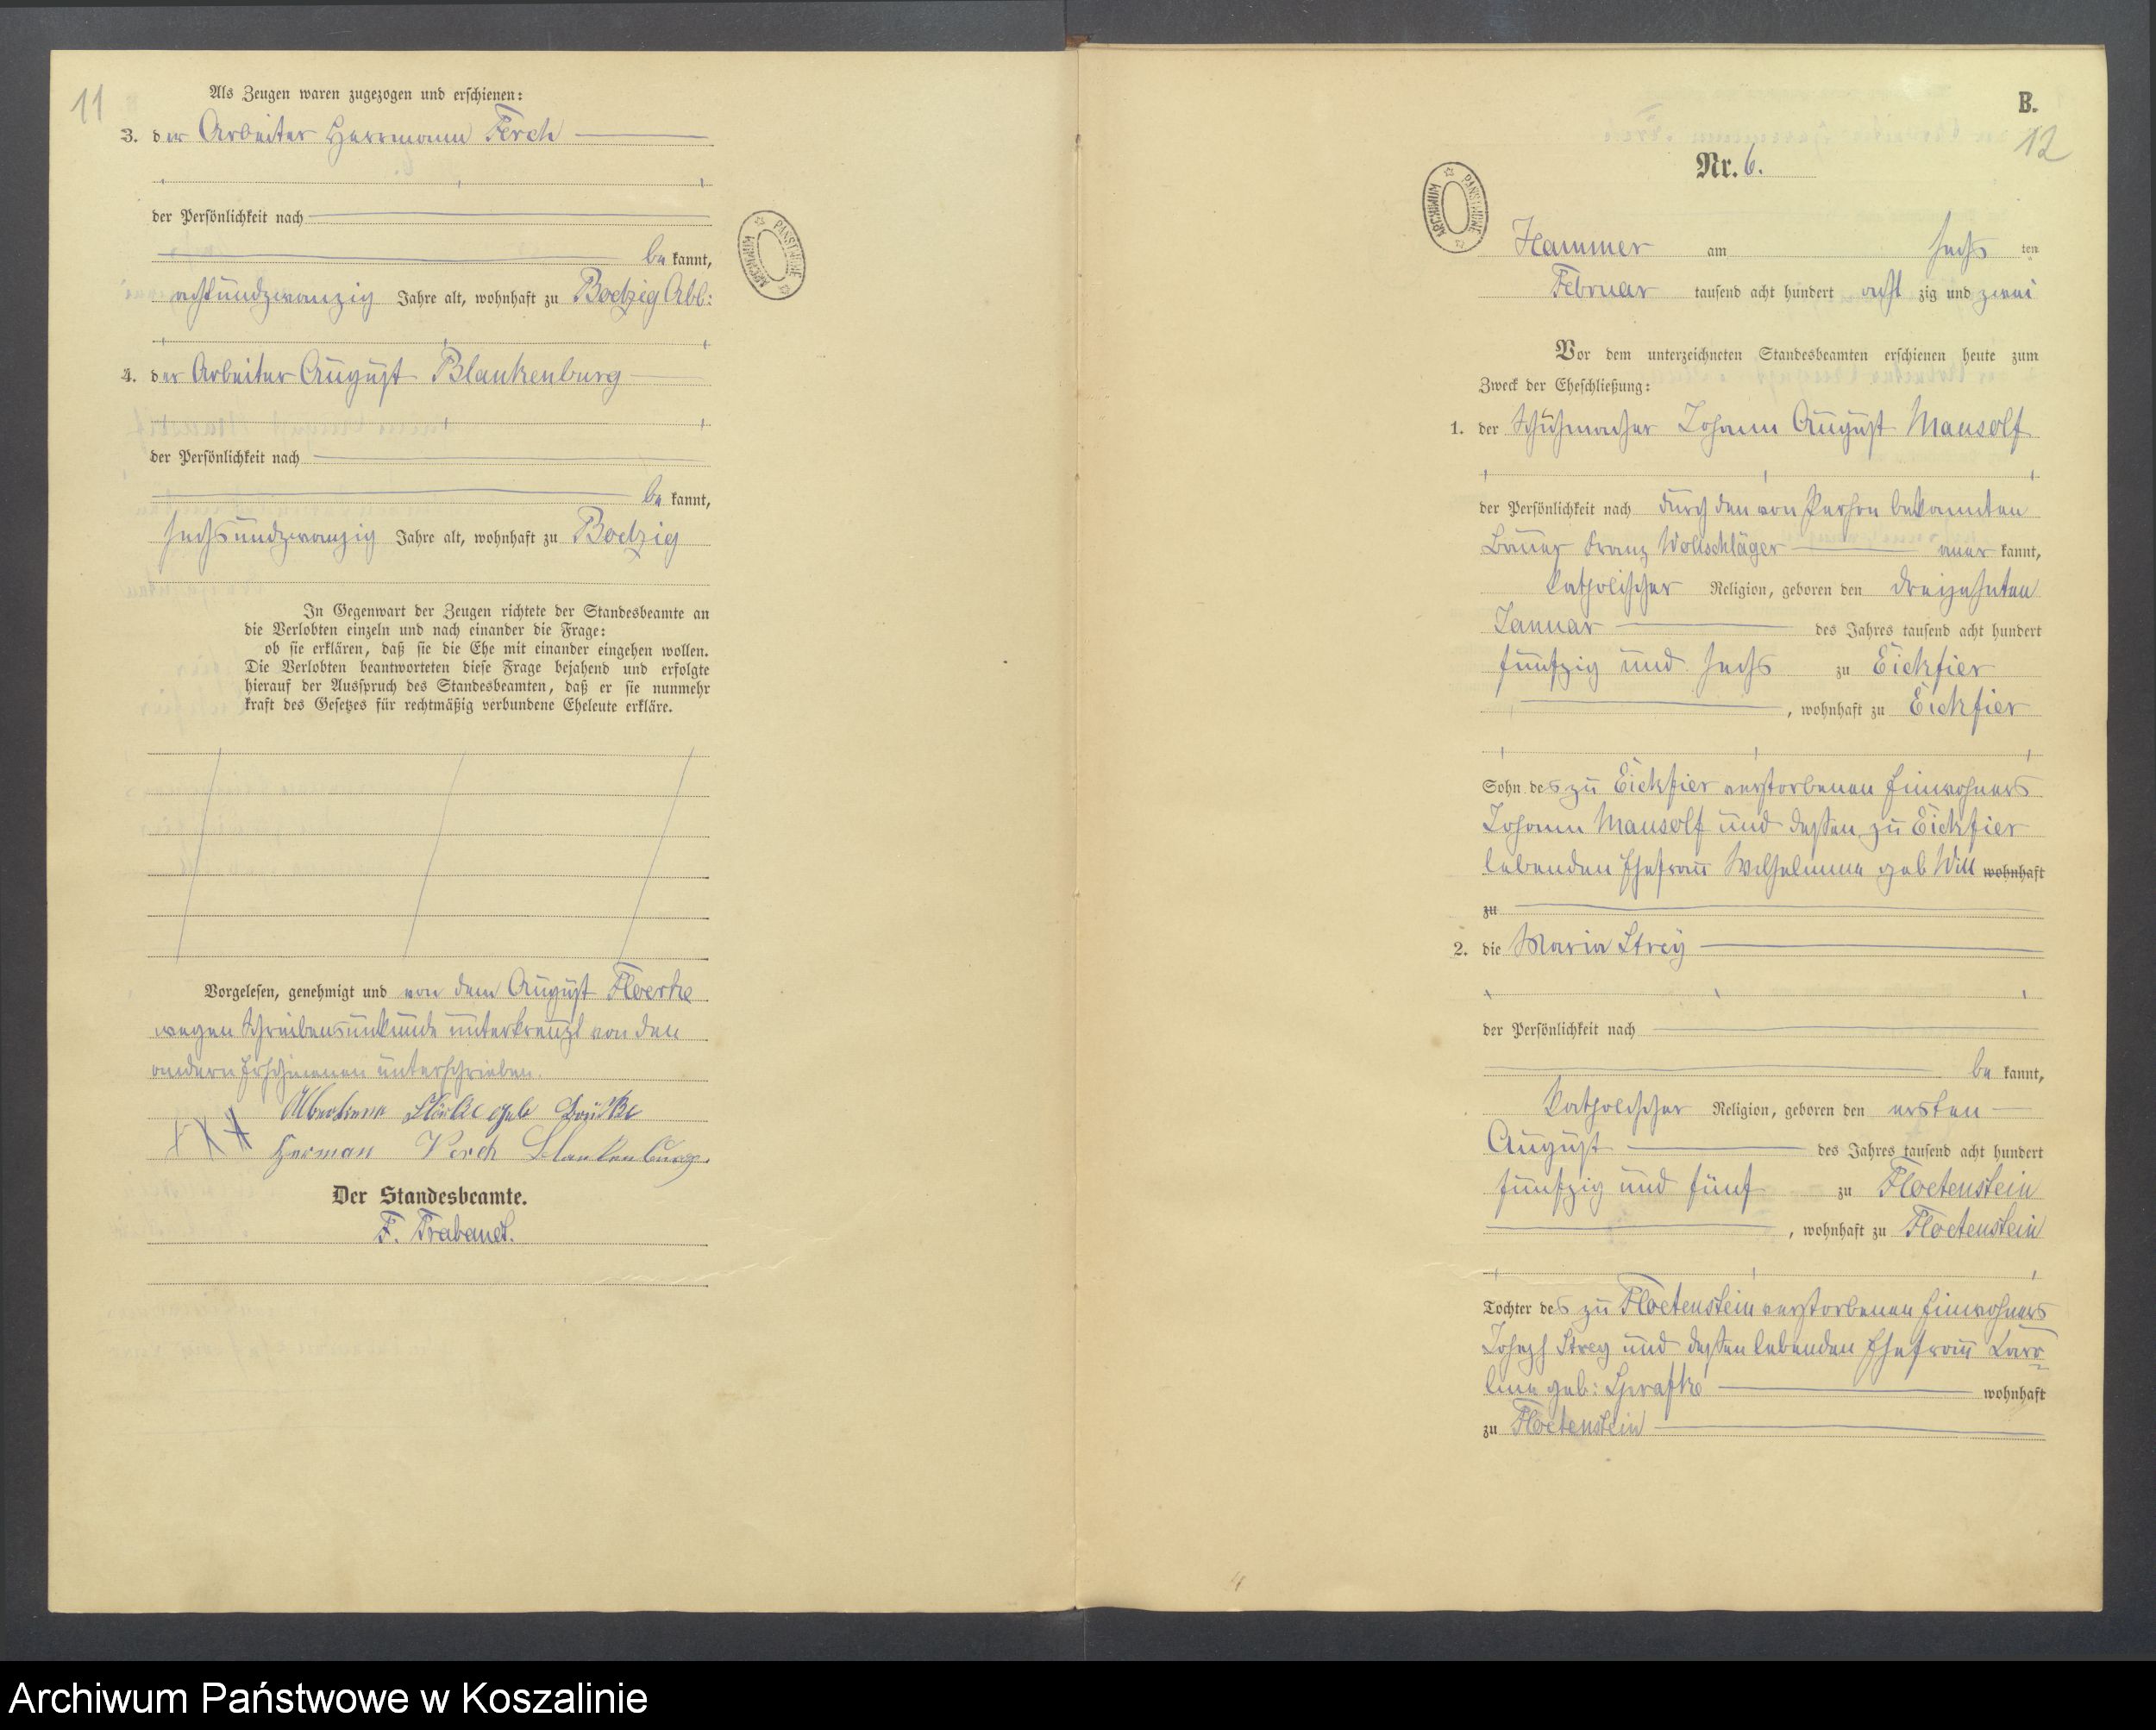 11
Als Zeugen waren zugezogen und erschienen:
3. der Arbeiter Herrmann Ferch
der Persönlichkeit nach
be kannt,
achtundzwanzig Jahre alt, wohnhaft zu Boetzig Abb:
4. der Arbeiter August Blankenburg
der Persönlichkeit nach
be kannt,
sechsundzwanzig Jahre alt, wohnhaft zu Boetzig
In Gegenwart der Zeugen richtete der Standesbeamte an
die Verlobten einzeln und nach einander die Frage:
ob sie erklären, daß sie die Ehe mit einander eingehen wollen.
Die Verlobten beantworteten diese Frage bejahend und erfolgte
hierauf der Ausspruch des Standesbeamten, daß er sie nunmehr
kraft des Gesetzes für rechtmäßig verbundene Eheleute erkläre.
Vorgelesen, genehmigt und von dem August Floerke
wegen Schreibensunkunde unterkreuzt von den
andern Erschienenen unterschrieben.
Albertine geb
+++ Herman Ferch Blankenburg.
Der Standesbeamte.
F. Trabandt.
ARCHIWUM PAŃSTWOWE
B.
12
Nr. 6.
ARCHIWUM PAŃSTWOWE
Hammer am sechs ten
Februar tausend acht hundert acht zig und zwei
Vor dem unterzeichneten Standesbeamten erschienen heute zum
Zweck der Eheschließung:
1. der Schuhmacher Johann August Mausolf
der Persönlichkeit nach durch den von Person bekannten
Bauer Franz Wollschläger aner kannt,
katholischer Religion, geboren den dreizehnten
Januar des Jahres tausend acht hundert
fünfzig und sechs zu Eickfier
, wohnhaft zu Eickfier
Sohn des zu Eickfier verstorbenen Einwohners
Johann Mausolf und dessen zu Eickfier
lebenden Ehefrau Wilhelmine geb Will wohnhaft
zu
2. die Maria Strey
der Persönlichkeit nach
be kannt,
katholischer Religion, geboren den ersten
August des Jahres tausend acht hundert
fünfzig und fünf zu Floetenstein
, wohnhaft zu Floetenstein
Tochter des zu Floetenstein verstorbenen Einwohners
Joseph Strey und dessen lebenden Ehefrau Karo-
line geb: Sprafke wohnhaft
zu Floetenstein
4
Archiwum Państwowe w Koszalinie